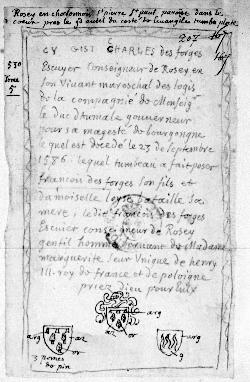 Rosey en charolomois, St pierre St paul paroisse dans le
coeur pres le gd autel du costé de levangles tumba plate
207 167
530
Tome
5e
CY GIST CHARLES des forges
Escuyer Conseigneur de Rosey en
son Vivant mareschal des logis
de la compagnie de Monseigr
le duc dhumale gouverneur
pour sa majesté de bourgongne
lequel est decedé le 23 de septembre
1586. lequel tumbeau a fait poser
francois des forges son fils et
damoiselle loyse bataille sa
mere, ledit francois des forges
Escuier conseigneur de Rosey
gentil homme servant de Madame
marguerite seur Unique de henry
III. roy de france et de poloigne
priez Dieu pour Eulx
arg az or
3 pomes
de pin
az
or
arg
g